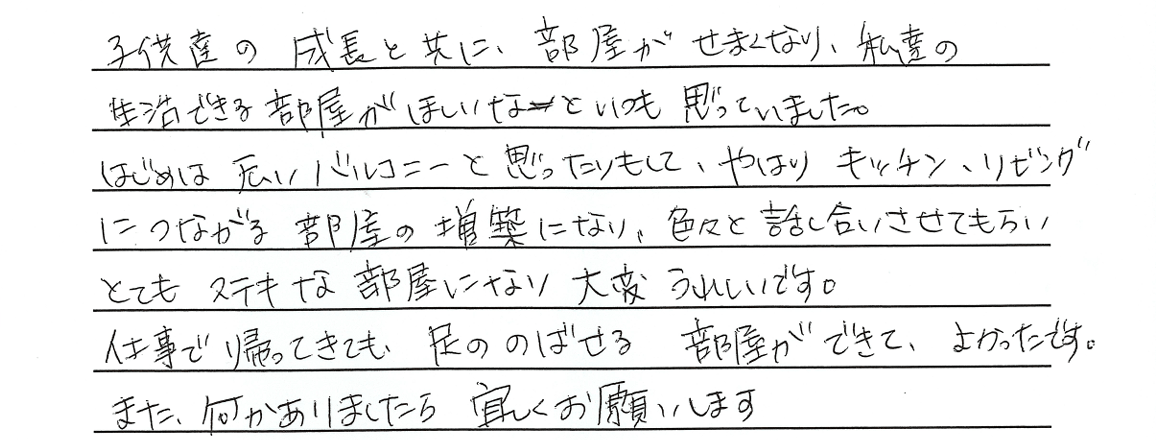 子供達の成長と共に、部屋がせまくなり、私達の
生活できる部屋がほしいなーといつも思っていました。
はじめは広いバルコニーと思ったりもして、やはりキッチン、リビング
につながる部屋の増築になり、色々と話し合いさせてもらい
とてもステキな部屋になり大変うれしいです。
仕事で帰ってきても、足ののばせる部屋ができて、よかったです。
また、何かありましたら宜しくお願いします